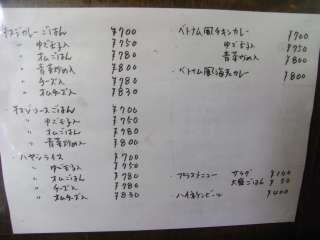 チキンカレーごはん ¥700
〃 ゆで玉子入 ¥750
〃 オムごはん ¥780
〃 青菜炒め入 ¥800
〃 チーズ入 ¥780
〃 オムチーズ入 ¥830
ソースごはん ¥700
〃 ゆで玉子入 ¥750
〃 オムごはん ¥780
〃 青菜炒め入 ¥800
ハヤシライス ¥700
〃 ゆで玉子入 ¥750
〃 オムごはん ¥780
〃 チーズ入 ¥780
〃 オムチーズ入 ¥830
・ベトナム風チキンカレー ¥700
〃 ゆで玉子入 ¥750
〃 青菜炒め入 ¥800
・ベトナム風海老カレー ¥800
・プラスメニュー サラダ ¥140
大盛ごはん ¥50
・ハイネケンビール ¥400